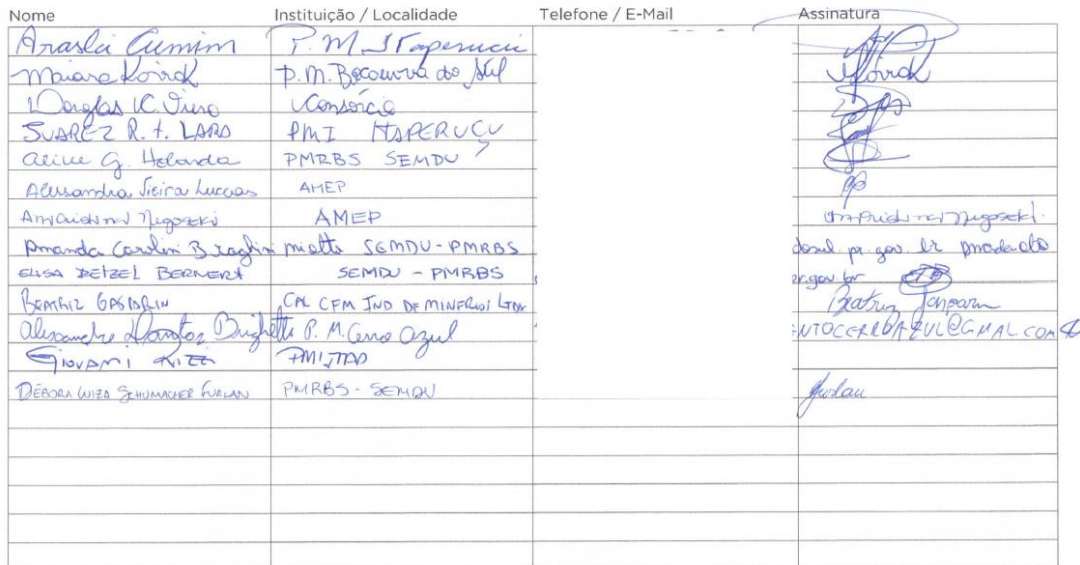 Nome Instituição / Localidade Telefone / E-Mail Assinatura
Araslei Cumim P. M. Itaperuçu
Maiara Koirck P.M. Bocaiuva do Sul Koirck
Douglas K. Consórcio
SUAREZ R. T. LARA PMI ITAPERUÇU
Aline G. Holanda PMRBS SEMDU
Alessandra Vieira Luccas AMEP
Negoseki AMEP Negoseki
Amanda Carolin Braghini miotto SEMDU-PMRBS dosul.pr.gov.br
ELISA DEIZEL BERNERT SEMDU - PMRBS r.gov.br
BEATRIZ GASPARIN CAL CEM IND DE MINERIOS LTDA Beatriz Gasparin
Alexandre Brighetti P. M. Cerro Azul NTOCERROAZUL@GMAIL.COM
GIOVANI
DÉBORA LUIZA SCHUMACHER FURLAN PMRBS - SEMDU Furlan